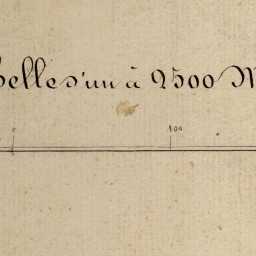 helle d'un à 2500 M
100